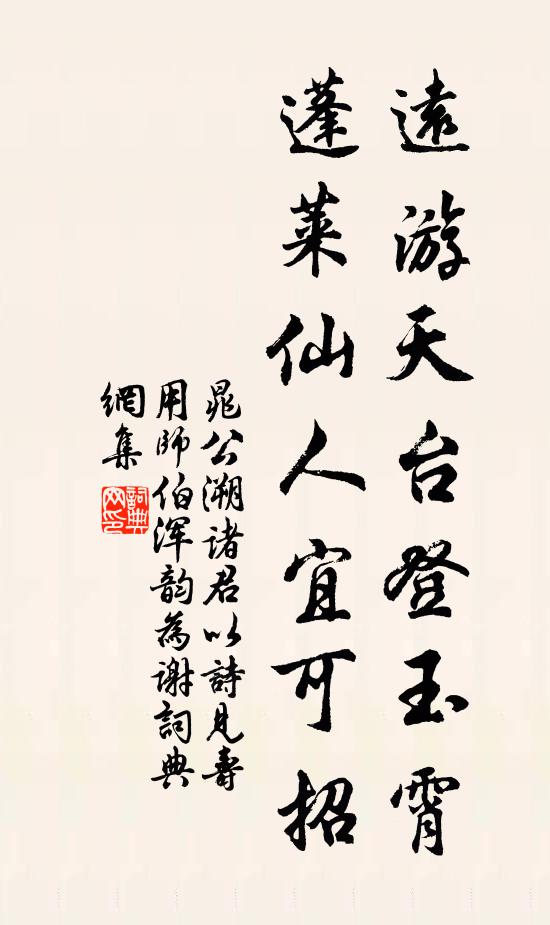 遠游天台登玉霄
蓬萊仙人宜可招
晁公溯諸君以詩見壽
用師伯渾韵為谢詞典
網集
詞典
网印